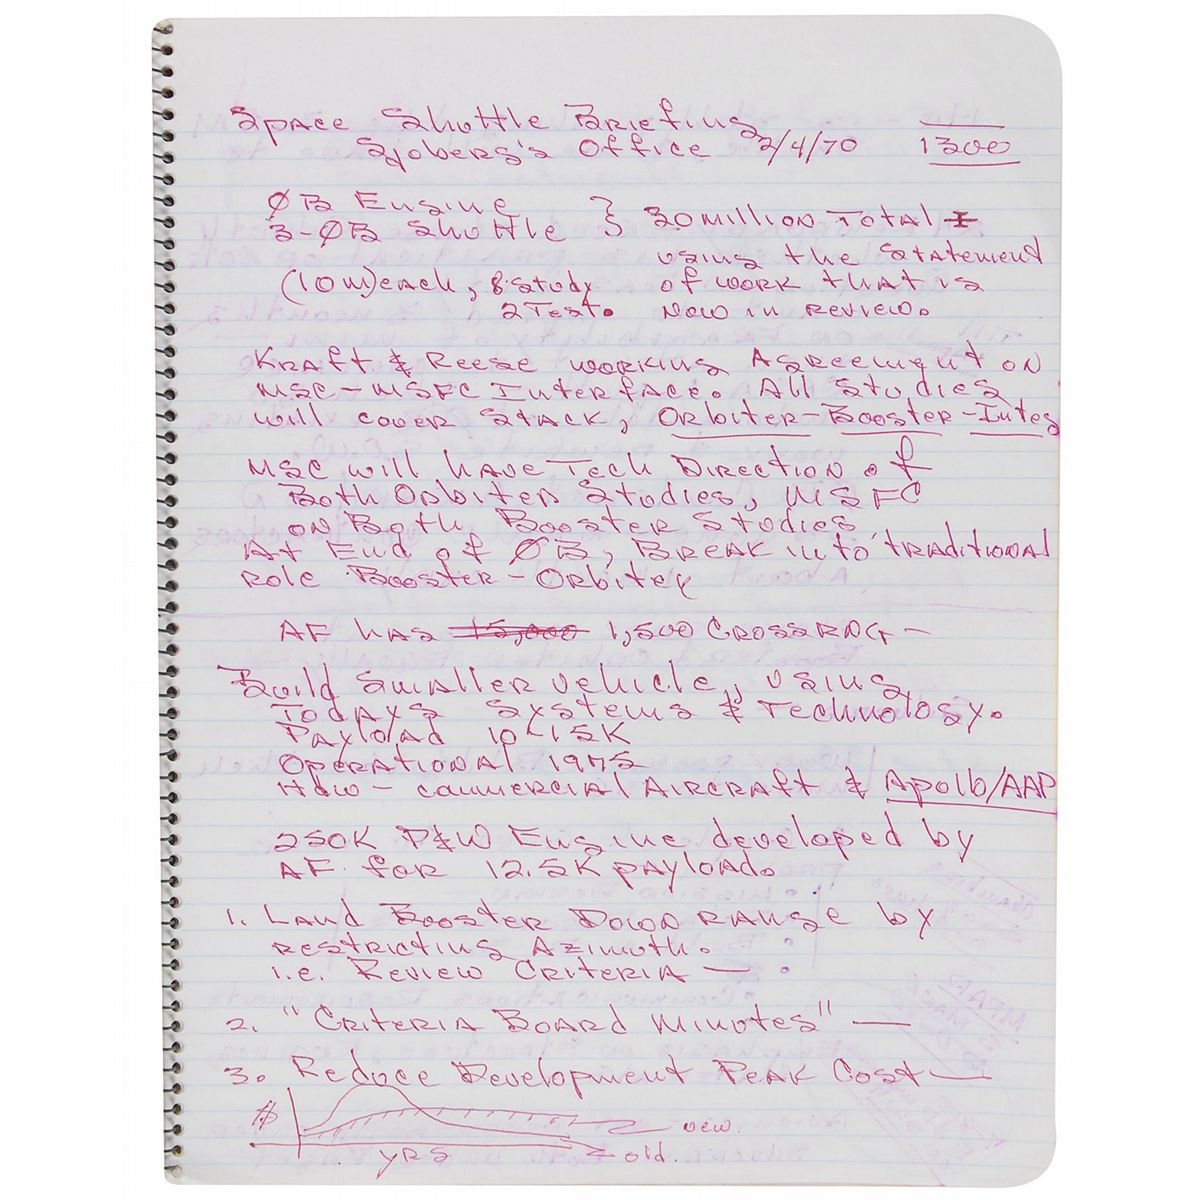 Space Shuttle Briefing
Sjoberg's Office 2/4/70 1300
ØB Engine
2-ØB Shuttle } 20 million Total
using the Statement
(10M) each, 8 Study of work that is
2 Test. now in review.
Kraft & Reese working Agreement on
MSC-MSFC Interface. All Studies
will cover Stack, Orbiter-Booster-Integ
MSC will have Tech Direction of
Both Orbiter Studies, MSFC
on Both Booster Studies
At End of ØB, Break into traditional
role Booster-Orbiter
AF has 15,000 1,500 CrossRng -
Build Smaller vehicle, using
Todays Systems & Technology.
Payload 10-15K
Operational 1975
How - commercial Aircraft & Apollo/AAP
250K P&W Engine developed by
AF for 12.5K payload.
1. Land Booster Down range by
restricting Azimuth.
i.e. Review Criteria -
2. "Criteria Board Minutes" -
3. Reduce Development Peak Cost -
$ new.
yrs old.